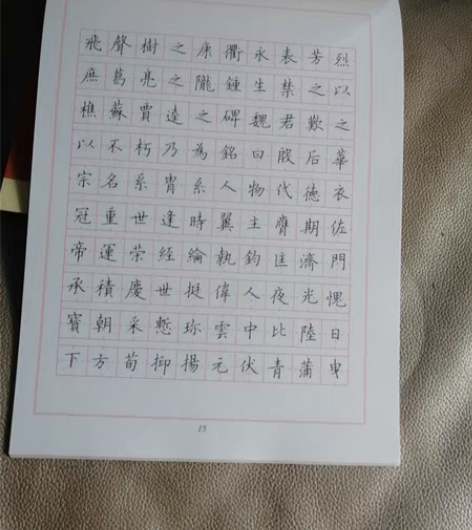 飛聲樹之康衢永表芳烈
庶葛亮之隴鍾生禁之以
樵蘇賈逵之碑魏君歎之
以不朽乃為銘曰殷后華
宗名系胄系人物代德衣
冠重世逢時翼主膺期佐
帝運榮經綸執鈞匡濟門
承積慶世挺偉人夜光愧
寶朝采慙珎雲中比陸日
下方荀抑揚元伏青蒲曳
15